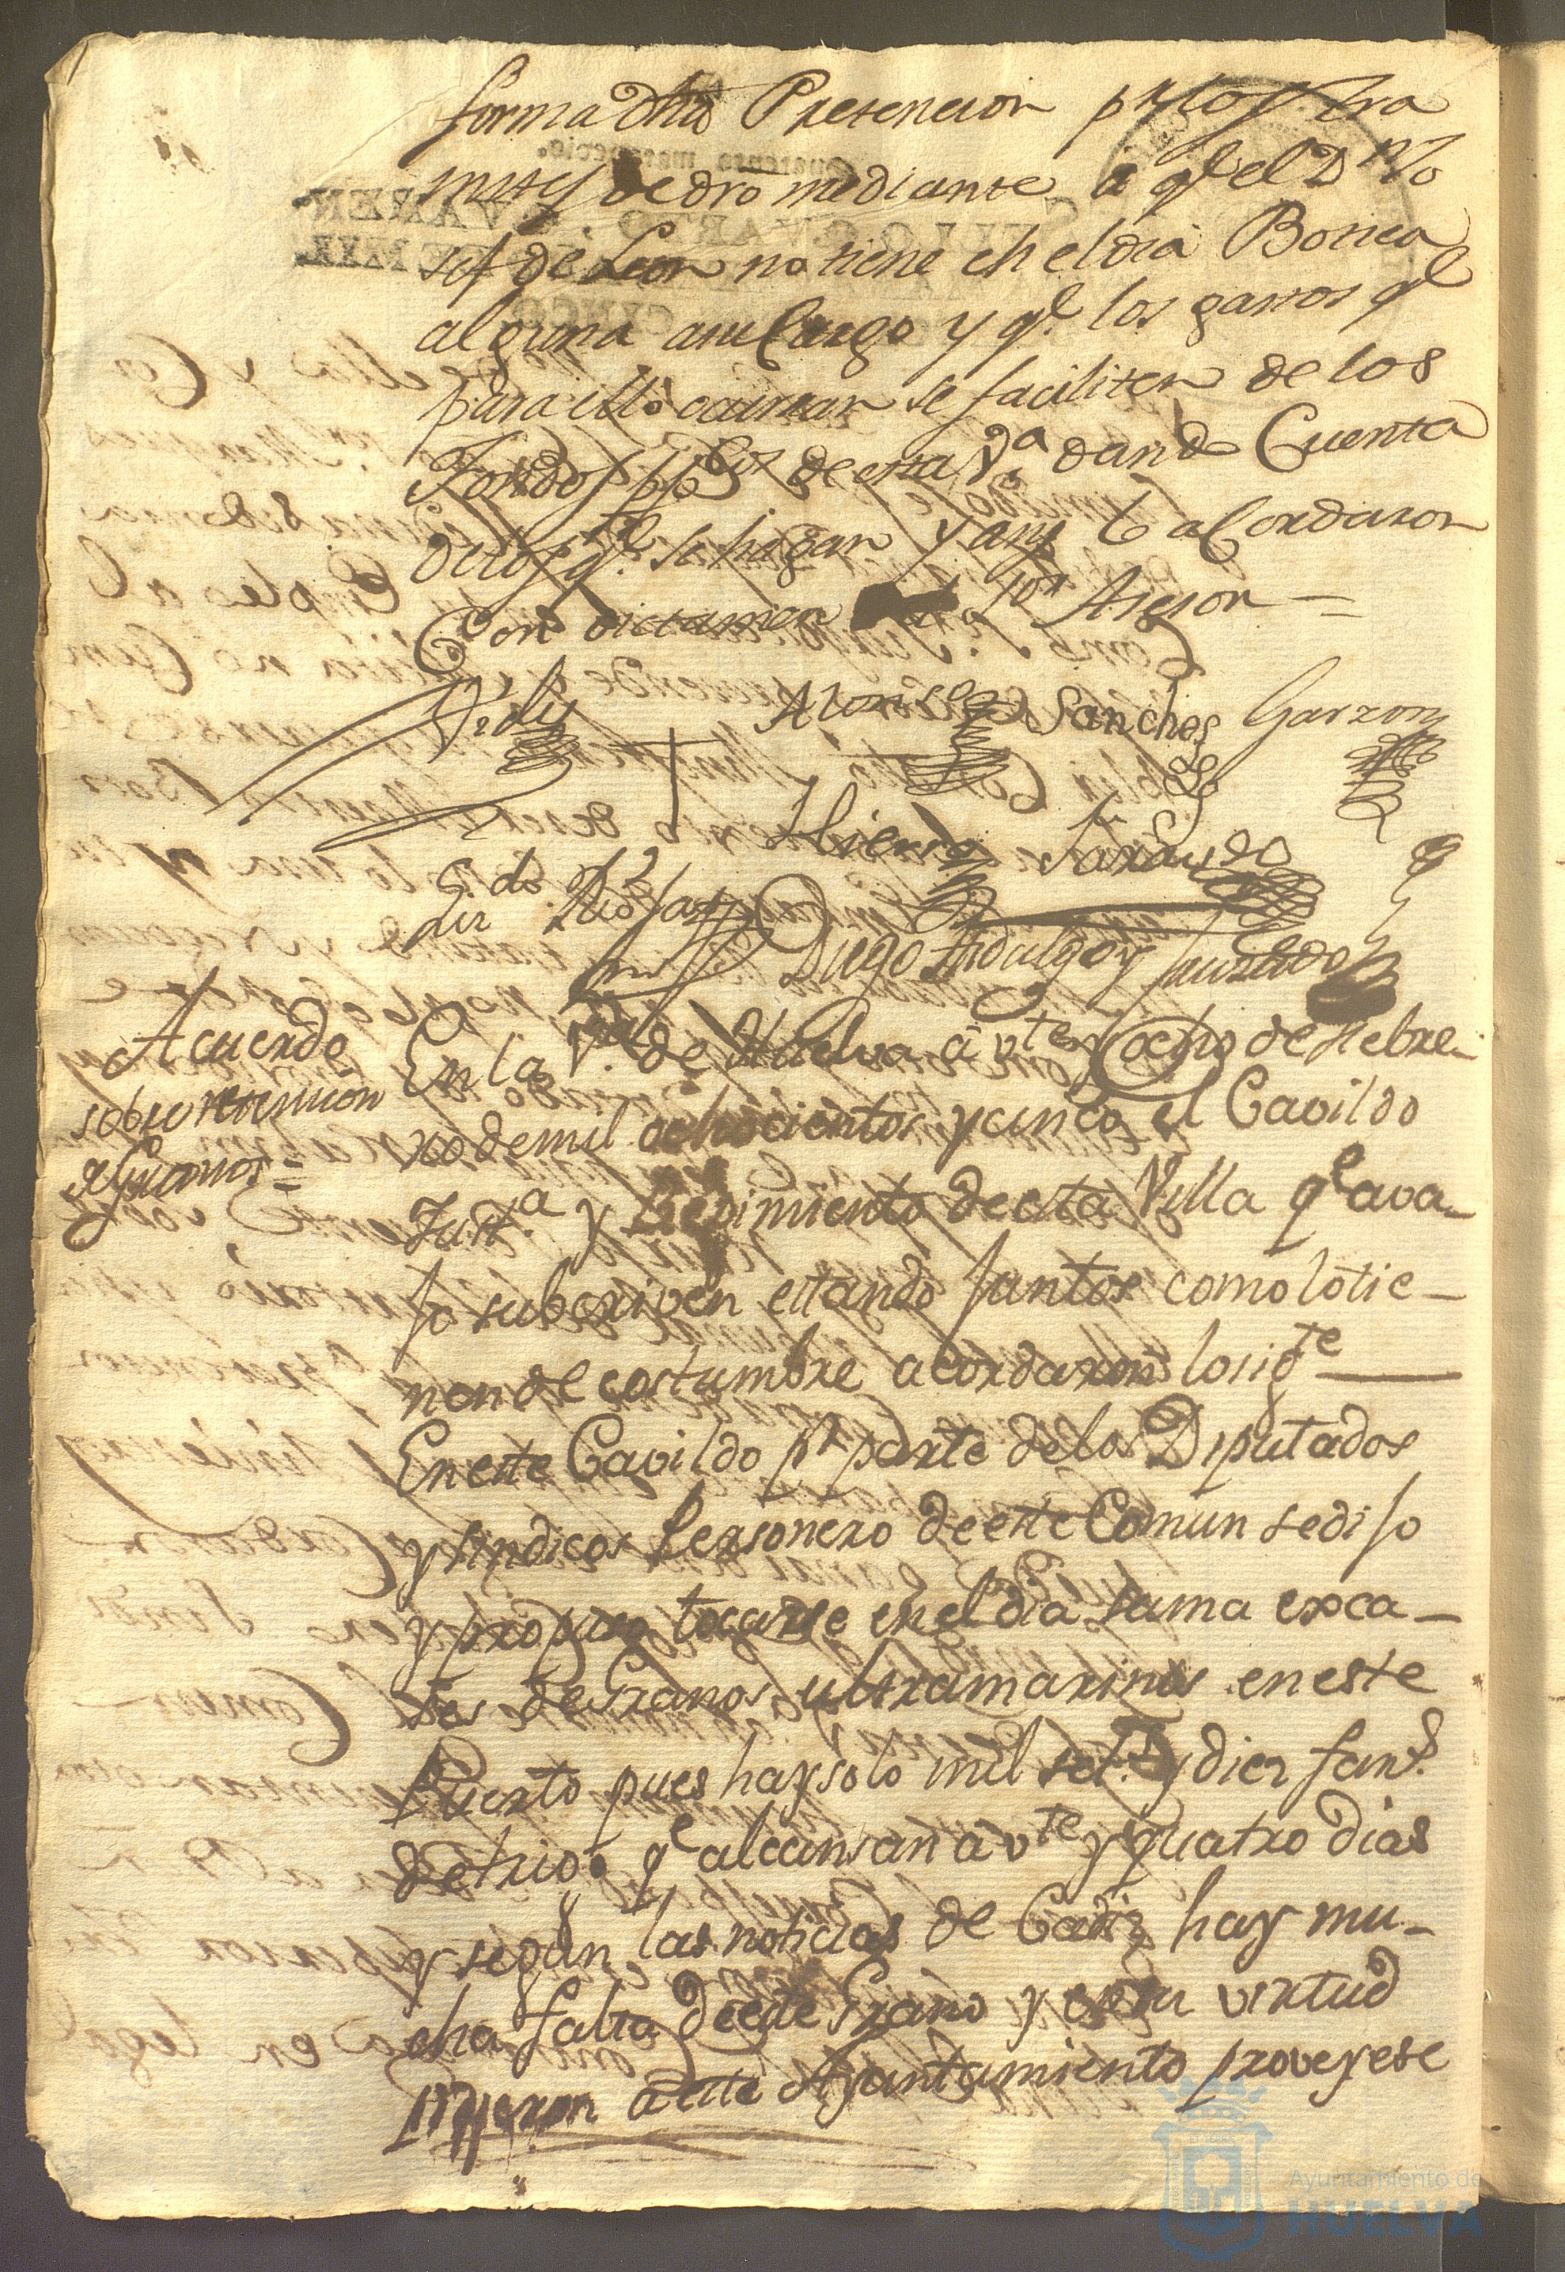 forma dha Pretencion pr los tra
mites de dro mediante à qe el Dn Jo
sef de Leon no tiene en el dia Botica
alguna a su Cargo y qe los gastos qe
para ello ocurran se faciliten de los
Fondos ppcos de esta Va dando Cuenta
de los qe se hagan y asi lo acordaron
Con dictamen Asesor =
Alonso Sanches Garzon
Hierro
Diego Hidalgo y Jurado
Acuerdo
sobre
Granos =
En la Va de Huelva à vte y ocho de Febre-
ro de mil ochocientos y cinco el Cavildo
Justa y Regimiento de esta Villa qe ava-
jo subscriven estando juntos como lo tie-
nen de costumbre acordaron lo sigte
En este Cavildo pr parte de los Diputados
y sindicos Personero de este Comun se dijo
y propuso tocarse en el dia suma esca-
ses de Granos ultramarinos en este
Puerto pues hay solo mil y diez fans
de trigo qe alcansan à vte y quatro dias
y segun las noticias de Cadiz hay mu-
cha falta de este Grano y en su virtud
pidieron à este Ayuntamiento proveyese
Ayuntamiento de
HUELVA